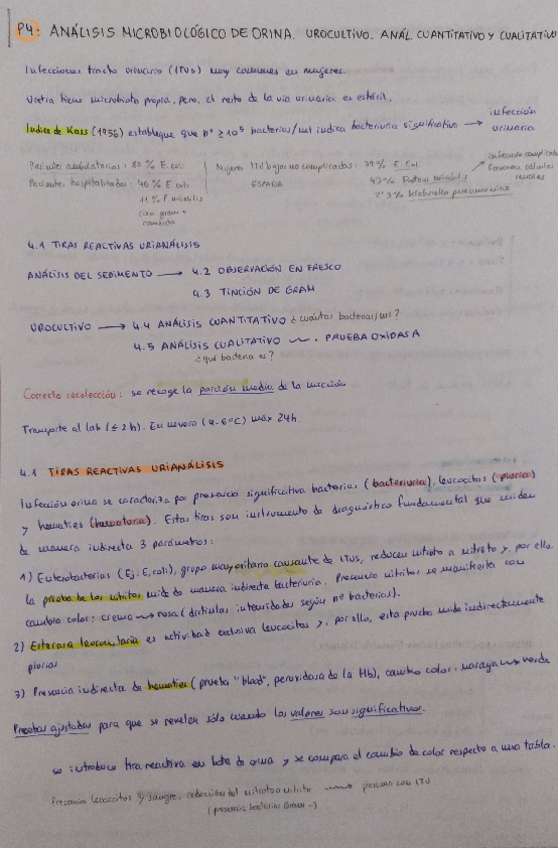 P4: ANÁLISIS MICROBIOLÓGICO DE ORINA. UROCULTIVO. ANÁL. CUANTITATIVO Y CUALITATIVO
Infecciones tracto urinario (ITUs) muy comunes en mujeres.
Uretra tiene microbiota propia, pero, el resto de la vía urinaria es estéril.
Índice de Kass (1956) establegue que nº ≥ 10⁵ bacterias/ml indica bacteriuria significativa → infección urinaria
Pacientes ambulatorios: 80% E. coli
Pacientes hospitalizados: 40% E. coli
11% P. mirabilis
gram +
candida
Mujeres ITU bajas no complicadas: E. Coli
ESPAÑA
4'3% Proteus mirabilis
2'3% Klebsiella pneumoniae
cálculos renales
4.1 TIRAS REACTIVAS URIANÁLISIS
ANÁLISIS DEL SEDIMENTO → 4.2 OBSERVACIÓN EN FRESCO
4.3 TINCIÓN DE GRAM
UROCULTIVO → 4.4 ANÁLISIS CUANTITATIVO ¿cuántas bacterias/ml?
4.5 ANÁLISIS CUALITATIVO . PRUEBA OXIDASA
¿qué bacteria es?
Correcta recolección: se recoge la porción media de la micción
Transporte al lab (≤ 2h). En nevera (4-6ºC) máx 24h.
4.1 TIRAS REACTIVAS URIANÁLISIS
Infección orina se caracteriza por presencia significativa bacterias (bacteriuria), leucocitos (piuria)
y hematíes (hematuria). Estas tiras son instrumento de diagnóstico fundamental que miden
de manera indirecta 3 parámetros:
1) Enterobacterias (Ej: E. coli), grupo mayoritario causante de ITUs, reducen nitrato a nitrito y, por ello,
la prueba de los nitritos mide de manera indirecta bacteriuria. Presencia nitritos se manifiesta con
cambio color: crema → rosa (distintas intensidades según nº bacterias).
2) Esterasa leucocitaria es actividad exclusiva leucocitos y, por ello, esta prueba mide indirectamente
piuria
3) Presencia indirecta de hematíes (prueba "blood", peroxidasa de la Hb), cambio color: naranja → verde
Pruebas ajustadas para que se revelen sólo cuando los valores son significativos.
se introduce tira reactiva en bote de orina y se compara el cambio de color respecto a una tabla.
Presencia leucocitos y sangre, reducción del nitrato a nitrito → persona con ITU
(presencia bacterias Gram -)